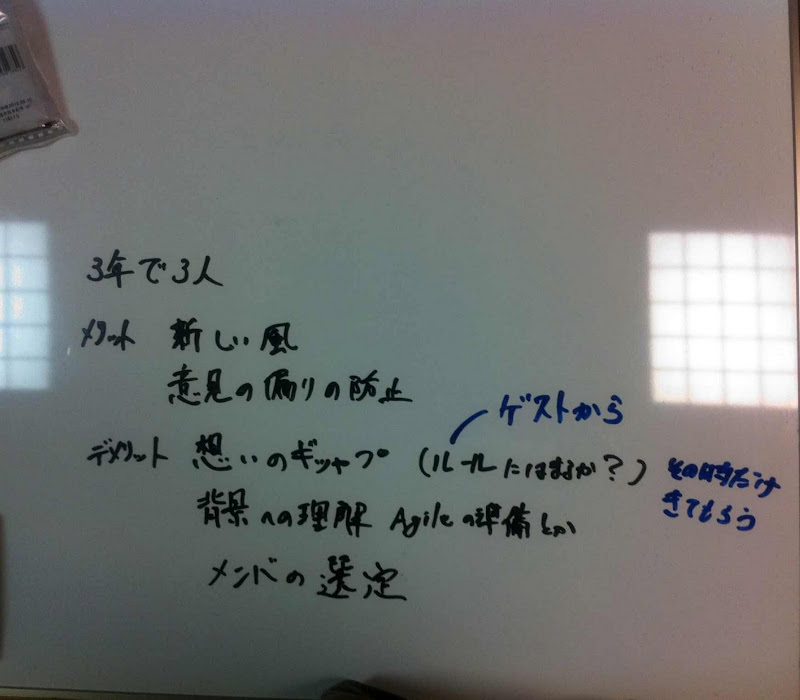 3年で3人
メリット 新しい風
意見の偏りの防止
ゲストから
デメリット 想いのギャップ (ルールにはまるか?) その時だけ
きてもらう
背景への理解 Agileの準備とか
メンバの選定